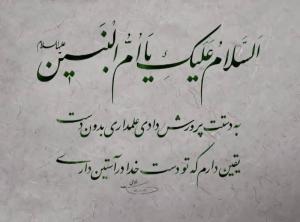 السلام علیک یا ام البنین علیهاالسلام
به دستت پرورش دادی علمداری بدون دست
یقین دارم که تو دست خدا در آستین داری